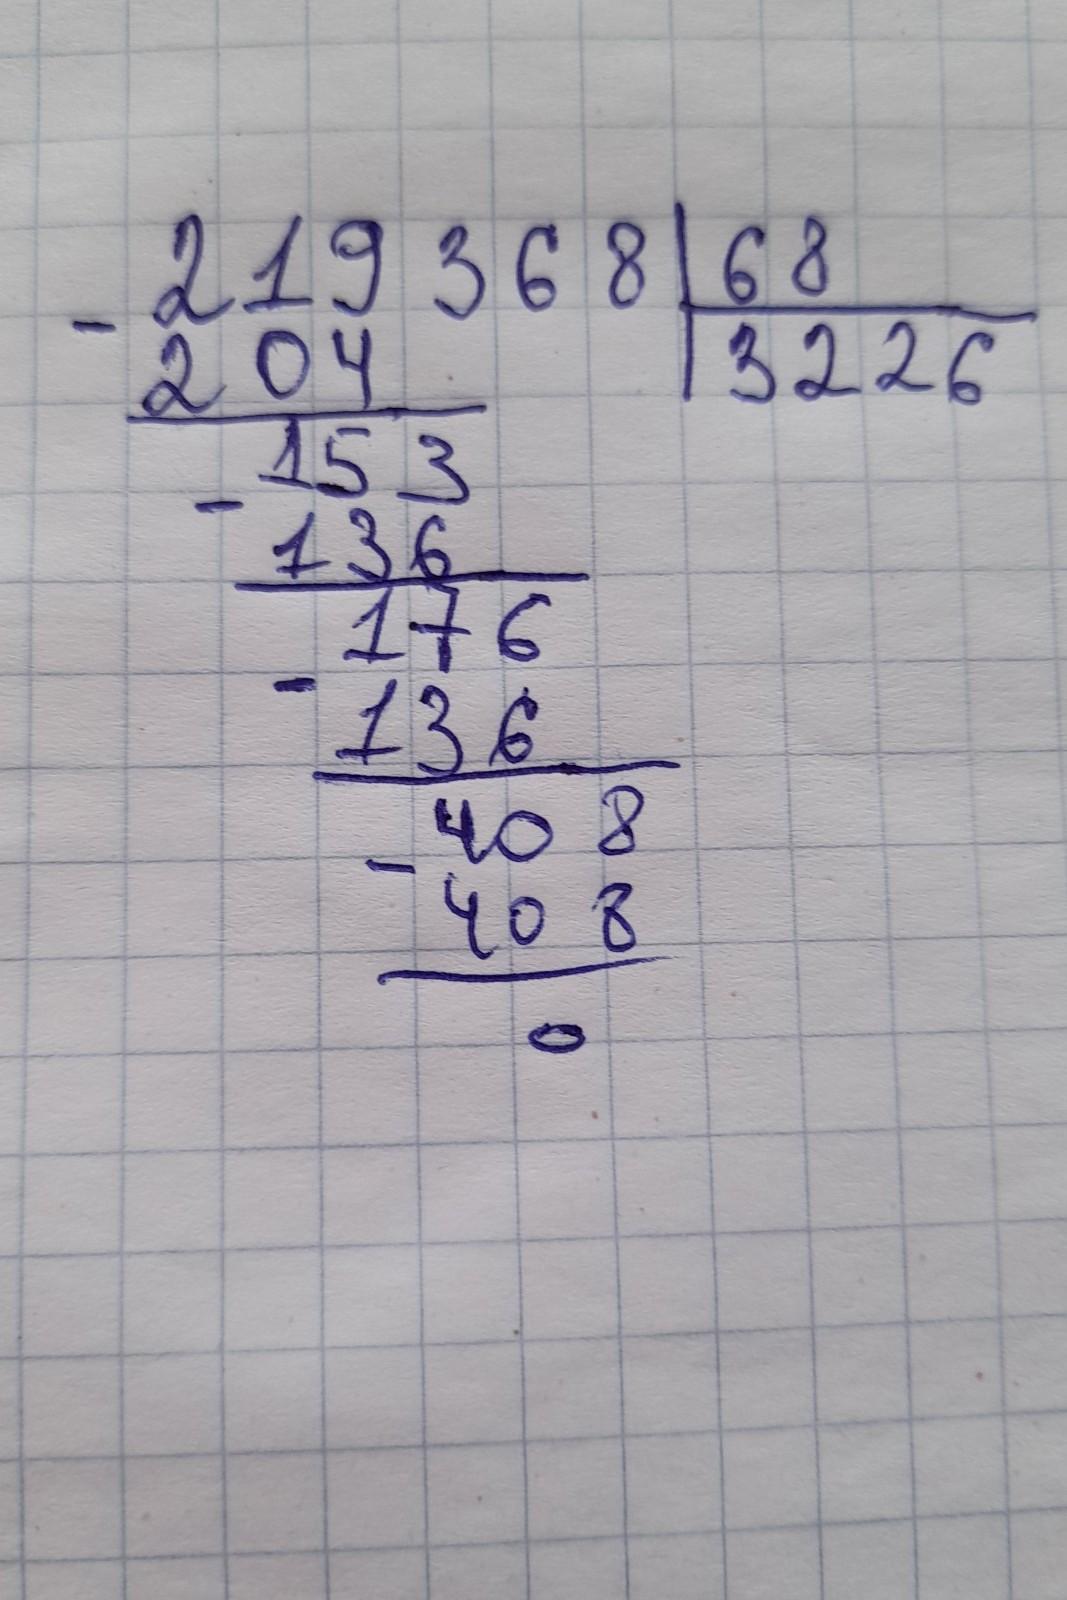 219368 | 68
- 204 | 3226
153
- 136
176
- 136
408
- 408
0